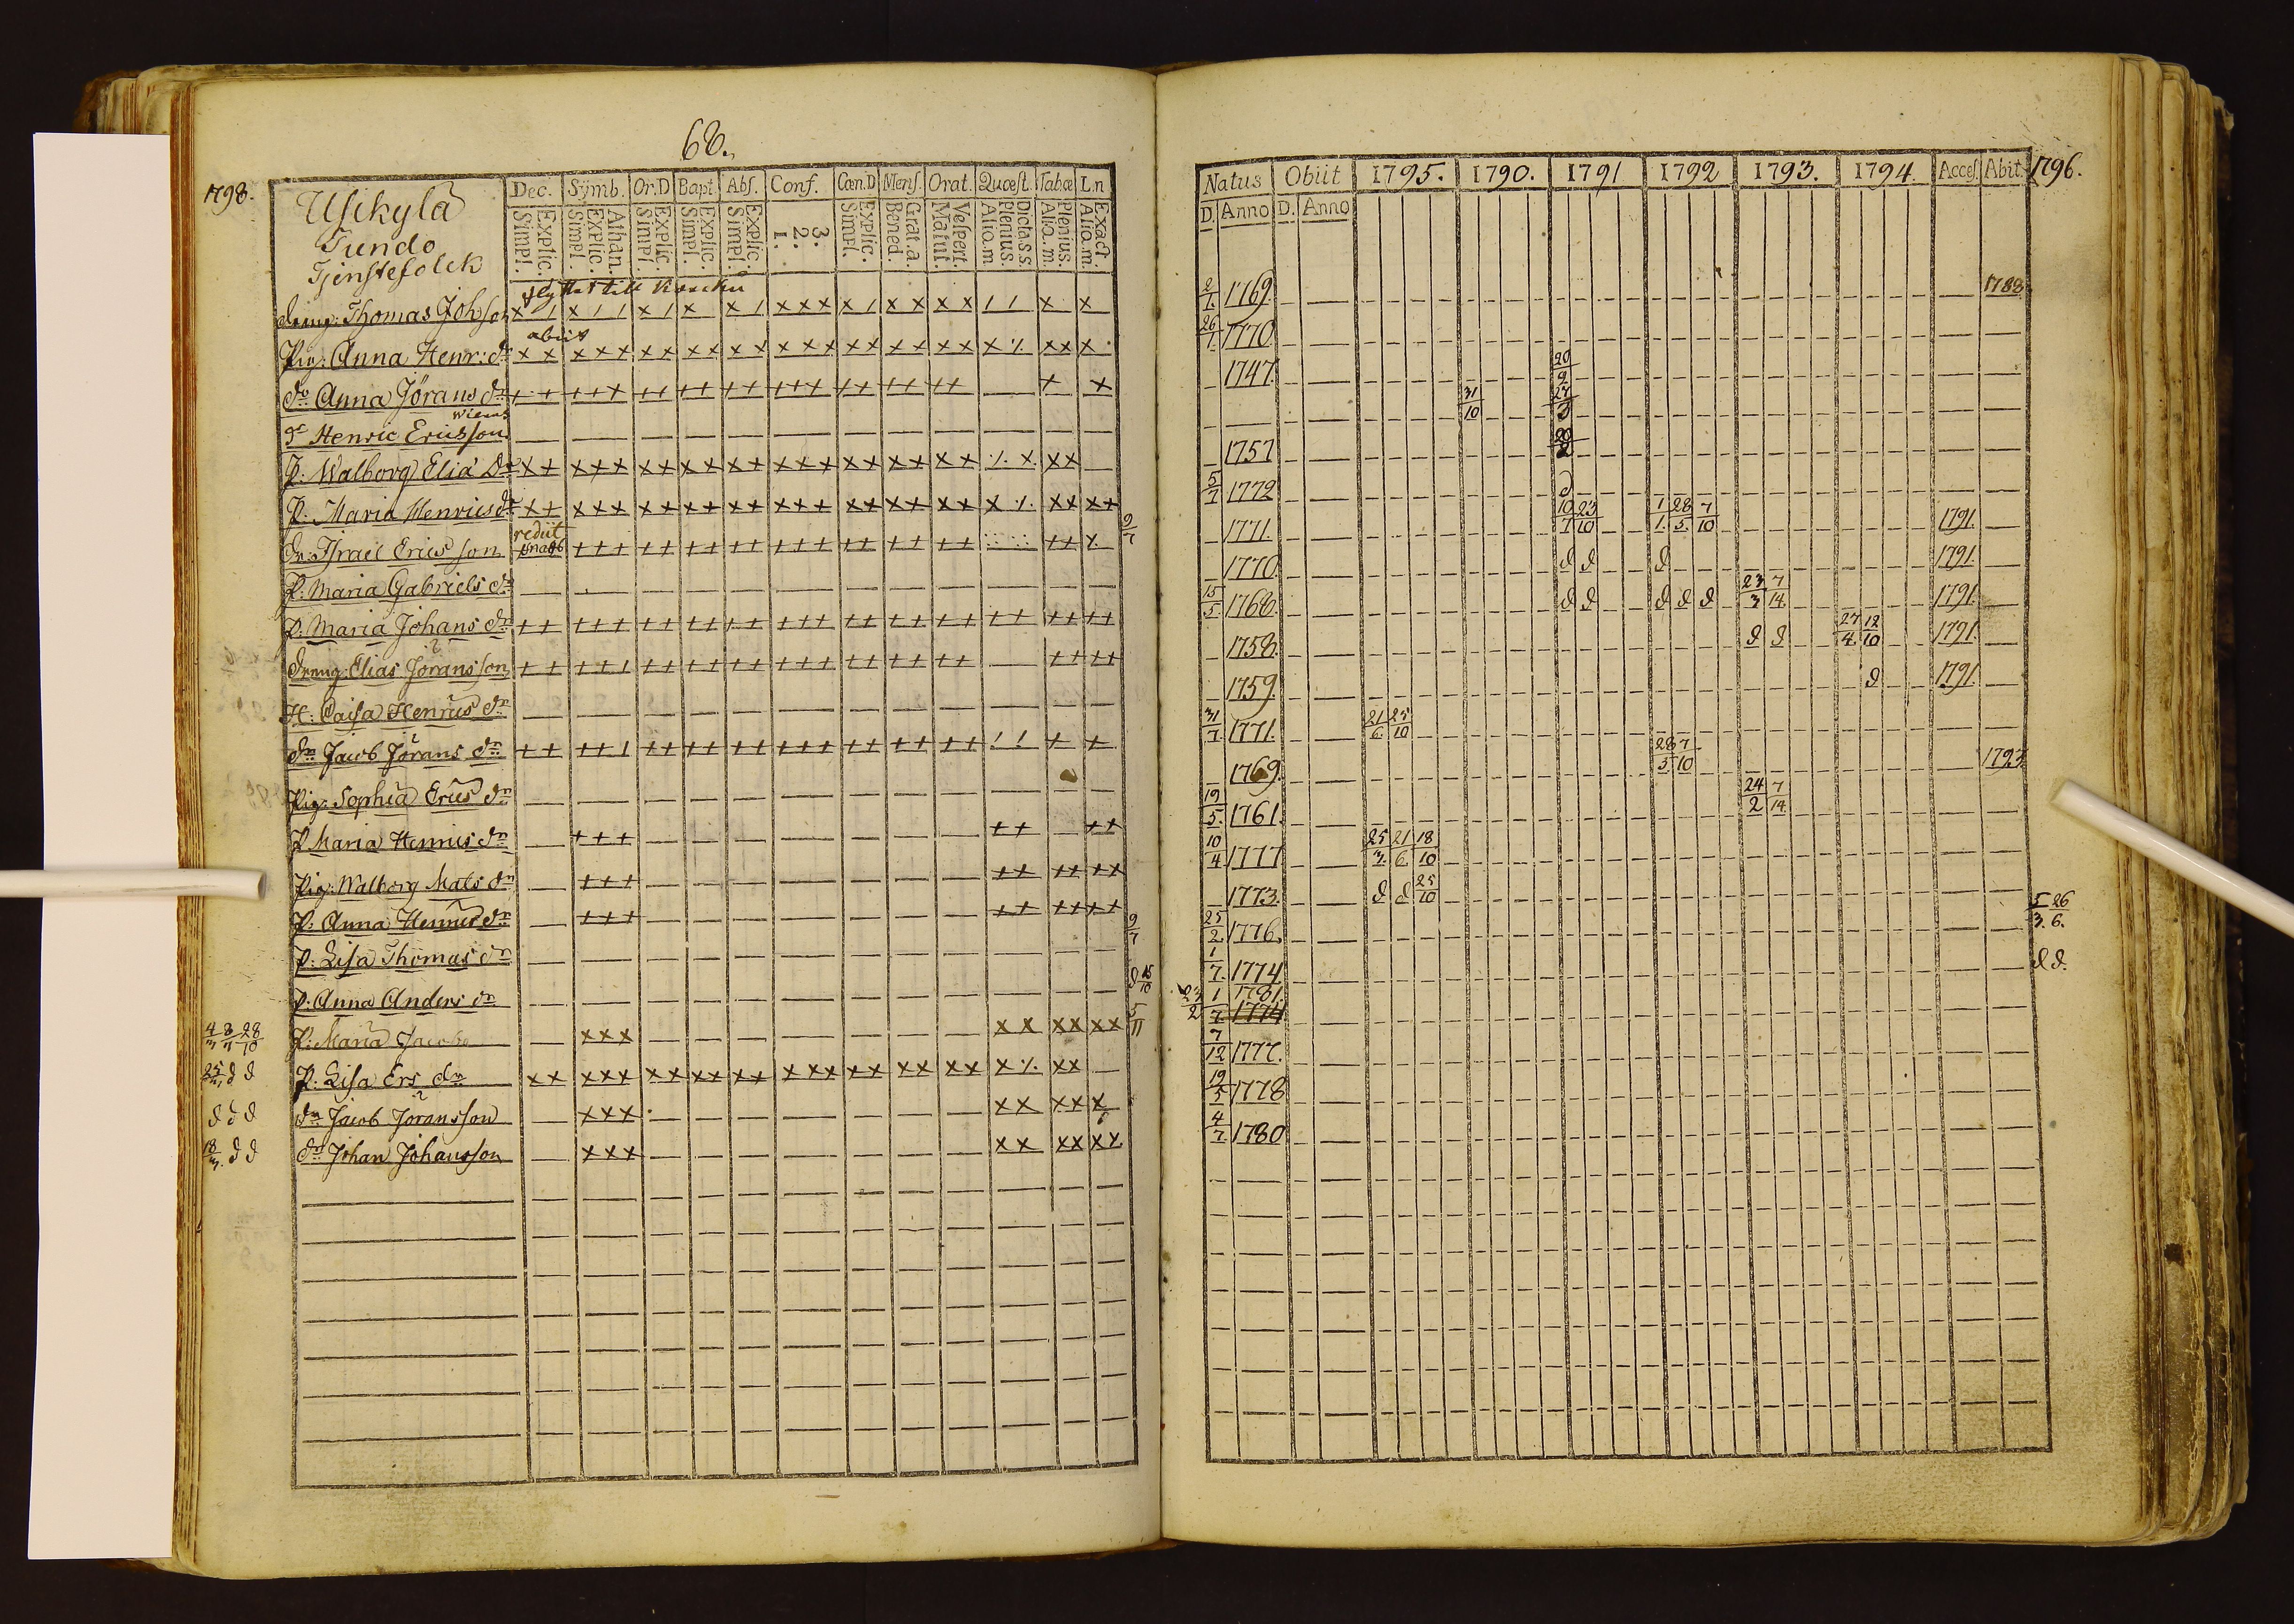 68.
1798.
Usikylä
Tundo
Tjenstefolck
Dec. Symb. Or.D Bapt. Abs. Conf. Cœn.D Mens. Orat. Quœst. Tab.œ L.n
Explic. Simpl. Athan. Explic. Simpl. Explic. Simpl. Explic. Simpl. Explic. Simpl. 3. 2. 1. Explic. Simpl. Grat.a. Bened. Vespert. Matut. Dicta.s.s. Plenius. Alio.m. Plenius. Alio.m. Exact. Alio.m.
flyttat till
dreng: Thomas Johsson x / x / / x / x x / x x x x / x x x x / / x x
abiit
Pig: Anna Henr: dr x x x x x x x x x x x x x x x x x x x x x ·/. x x x
do Anna Jörans dr + + + + x + + + + + + + + + + + + + + + + x
dr Henric Ericsson
P. Walborg Elia Dr x x x x x x x x x x x x x x x x x x x x ·/. x x x
P. Maria Henrics dr x + x x x x x x x x x x x x x x x x x x x x ·/. x x x x
9/7
rediit
dr: Israel Ericsson + + + + + + + + + + + + + + + + + + + + + x
P. Maria Gabriels dr
P. Maria Johans dr + + + + + + + + + + + + + + + + + + + + + + + + + + +
dreng: Elias Jöransson + + + + / + + + + + + + + + + + + + + + + + + +
H: Caisa Henrics dr
dn Jacob Jörans dn + + + + / + + + + + + + + + + + + + + + / / + +
Pig: Sophia Erics dr
P. Maria Henrics dr + + + + + + +
Pig: Walborg Mats dr + + + + + + + + +
P: Anna Henrics dr + + + + + + + + +
9/7
P: Lisa Thomas dr
d 15/10
P: Anna Anders dr
5/11
4/3 8/7 28/10 P: Maria Jacobs x x x x x x x x x
25/3 d d P. Lisa Ers dr x x x x x x x x x x x x x x x x x x x x x ·/. x x
d d d dn Jacob Jöransson x x x x x x x x
18/3 d d dn Johan Johansson x x x x x x x x x
Natus Obiit 1795. 1790. 1791 1792 1793. 1794. Acces. Abit. 1796.
D. Anno D. Anno
2/1. 1769. 1788.
26/1. 1770
1747. 20/9
31/10 27/3
1757 20/2
5/7 1772 d
1771. 10/7 23/10 1/1. 28/5. 7/10 1791.
1770. d d d 1791.
15/5. 1768. d d d d d 23/3 7/14. 1791.
1758. d d 27/4. 12/10 1791.
1759. d 1791.
31/7. 1771. 21/6. 25/10
1769. 28/5 7/10 1793
19/5. 1761. 24/2 7/14.
10/4 1777 25/3. 21/6. 18/10
1773. d d 25/10
25/2. 1776. 5/3. 26/6.
1/7. 1774 d d.
23/2 1/7. 1781. 1774
7/12 1777.
19/5 1778
4/7. 1780